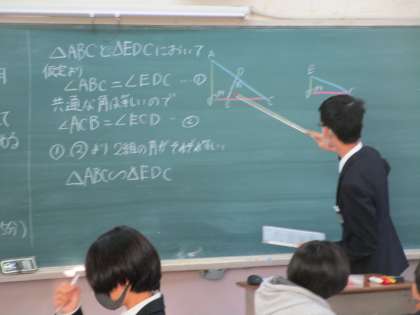 △ABCと△EDCにおいて
仮定より
∠ABC=∠EDC…①
共通な角は等しいので
∠ACB=∠ECD…②
①,②より2組の角がそれぞれ等しい
△ABC∽△EDC
A
D
E
分)